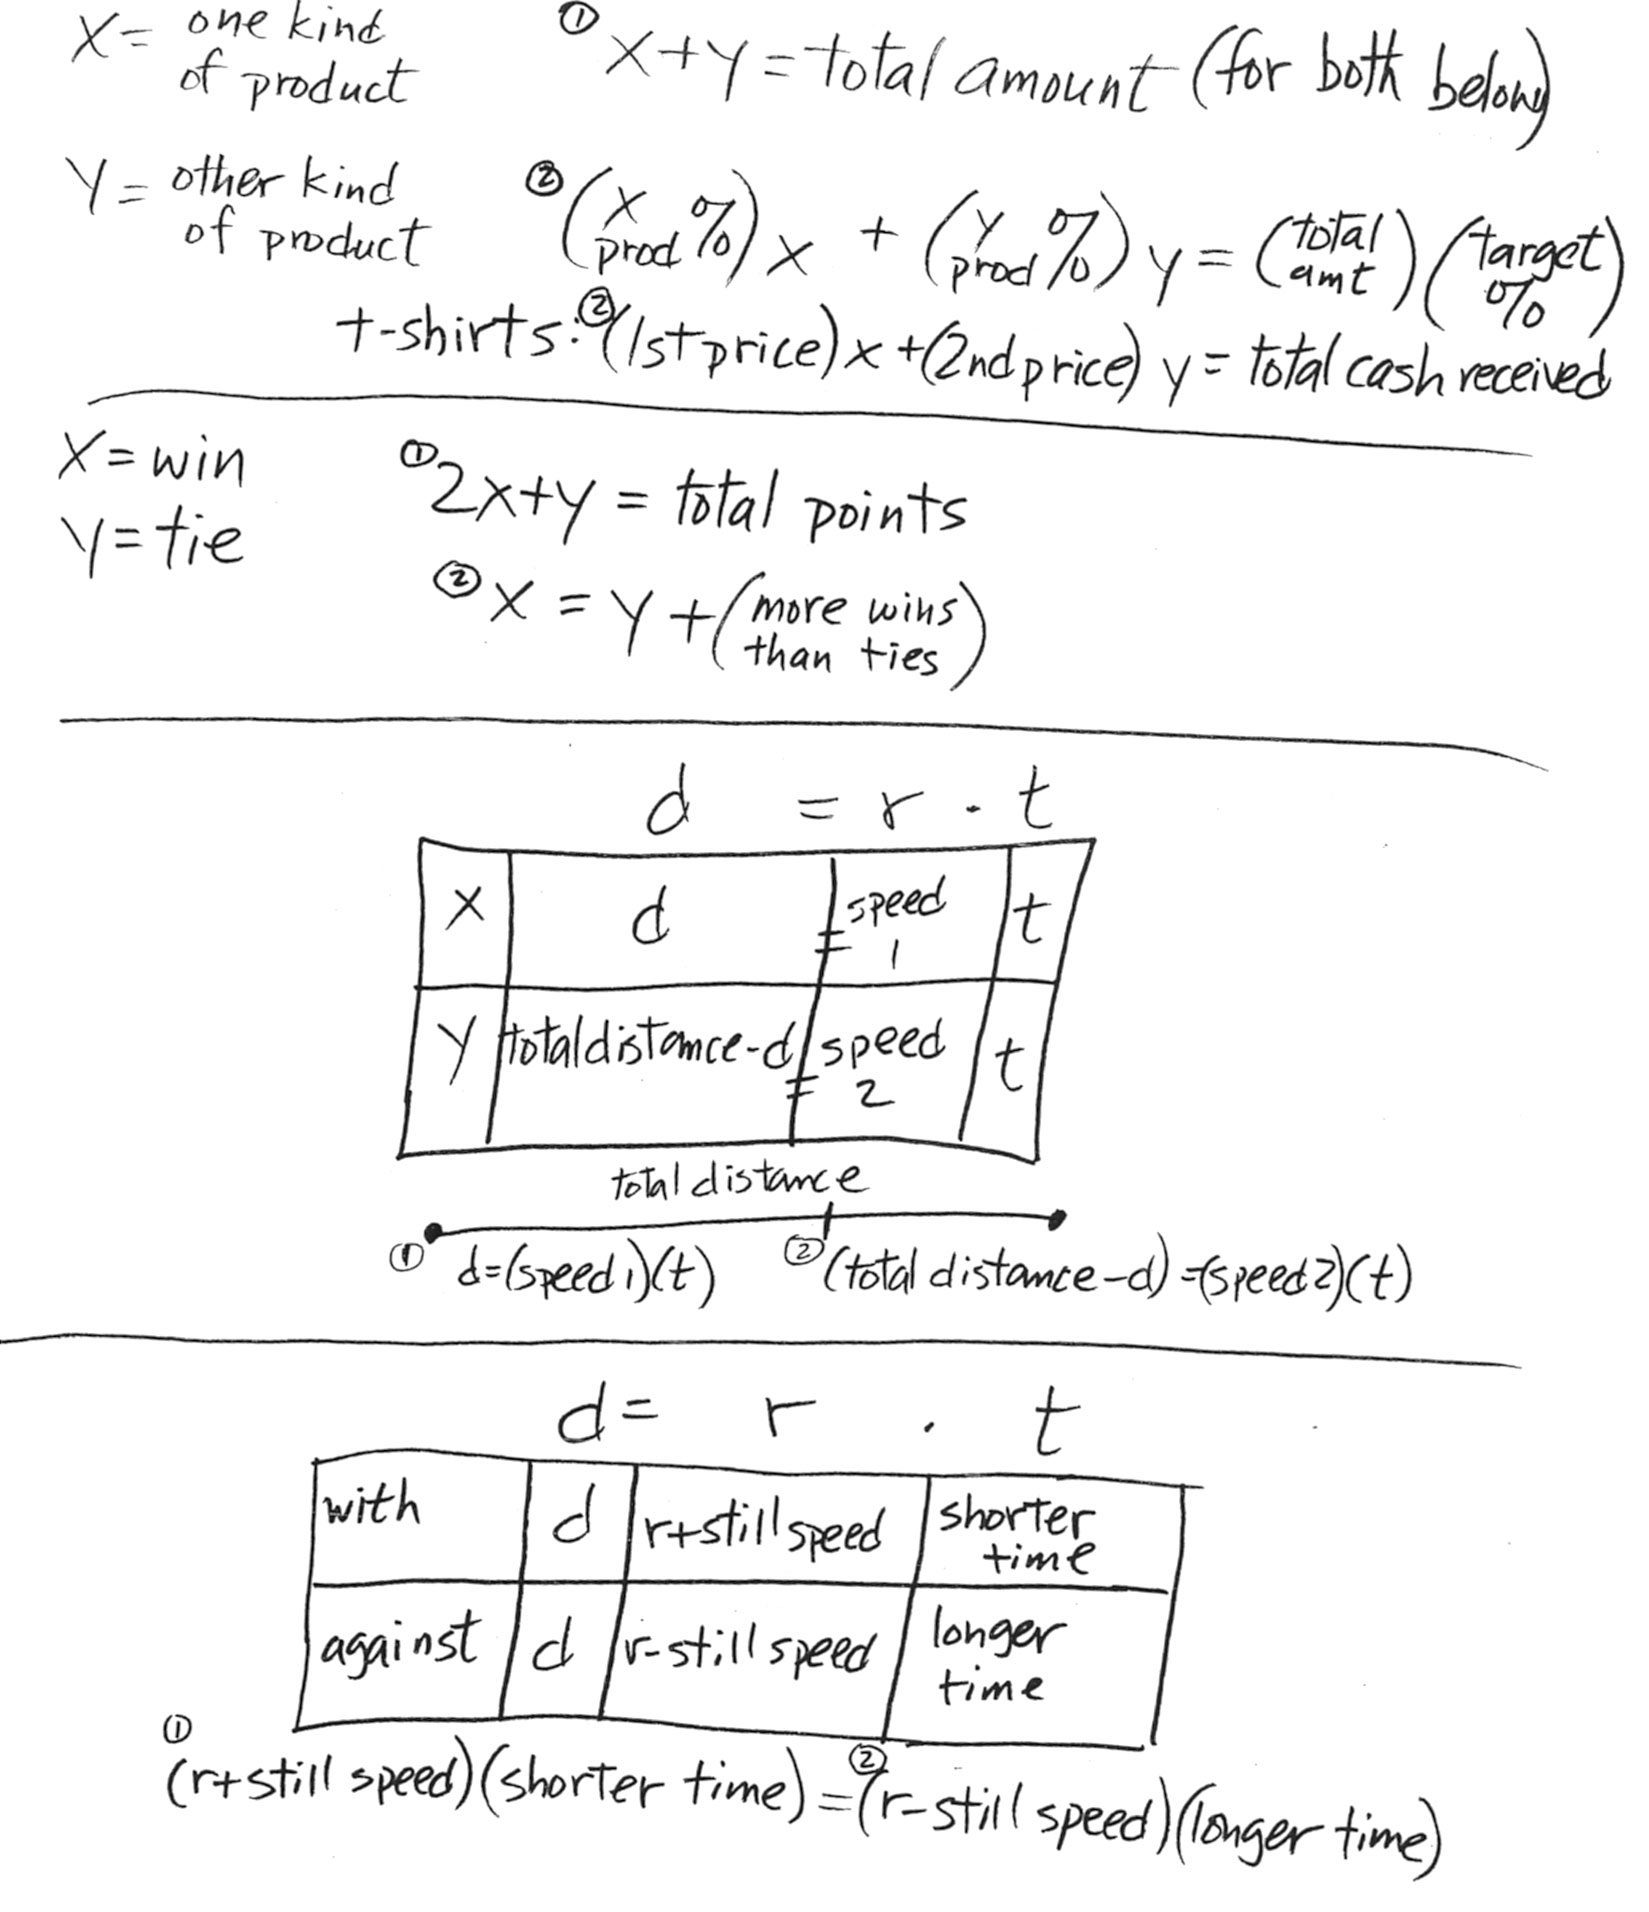 X = one kind of product
① X+Y = total amount (for both below)
Y = other kind of product
② (X prod %) X + (Y prod %) Y = (total amt) (target %)
t-shirts: ② (1st price) X + (2nd price) Y = total cash received
X = win
Y = tie
① 2X+Y = total points
② X = Y + (more wins than ties)
d = r · t
X d = speed 1 t
Y total distance-d = speed 2 t
total distance
① d=(speed 1)(t) ② (total distance-d) =(speed 2)(t)
d = r · t
with d r+still speed shorter time
against d r-still speed longer time
① (r+still speed)(shorter time) = ② (r-still speed)(longer time)